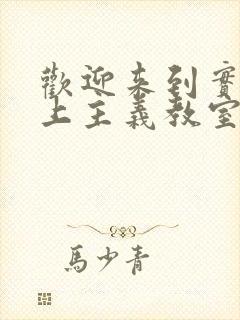 歡迎来到實
上主義教室
馬少青